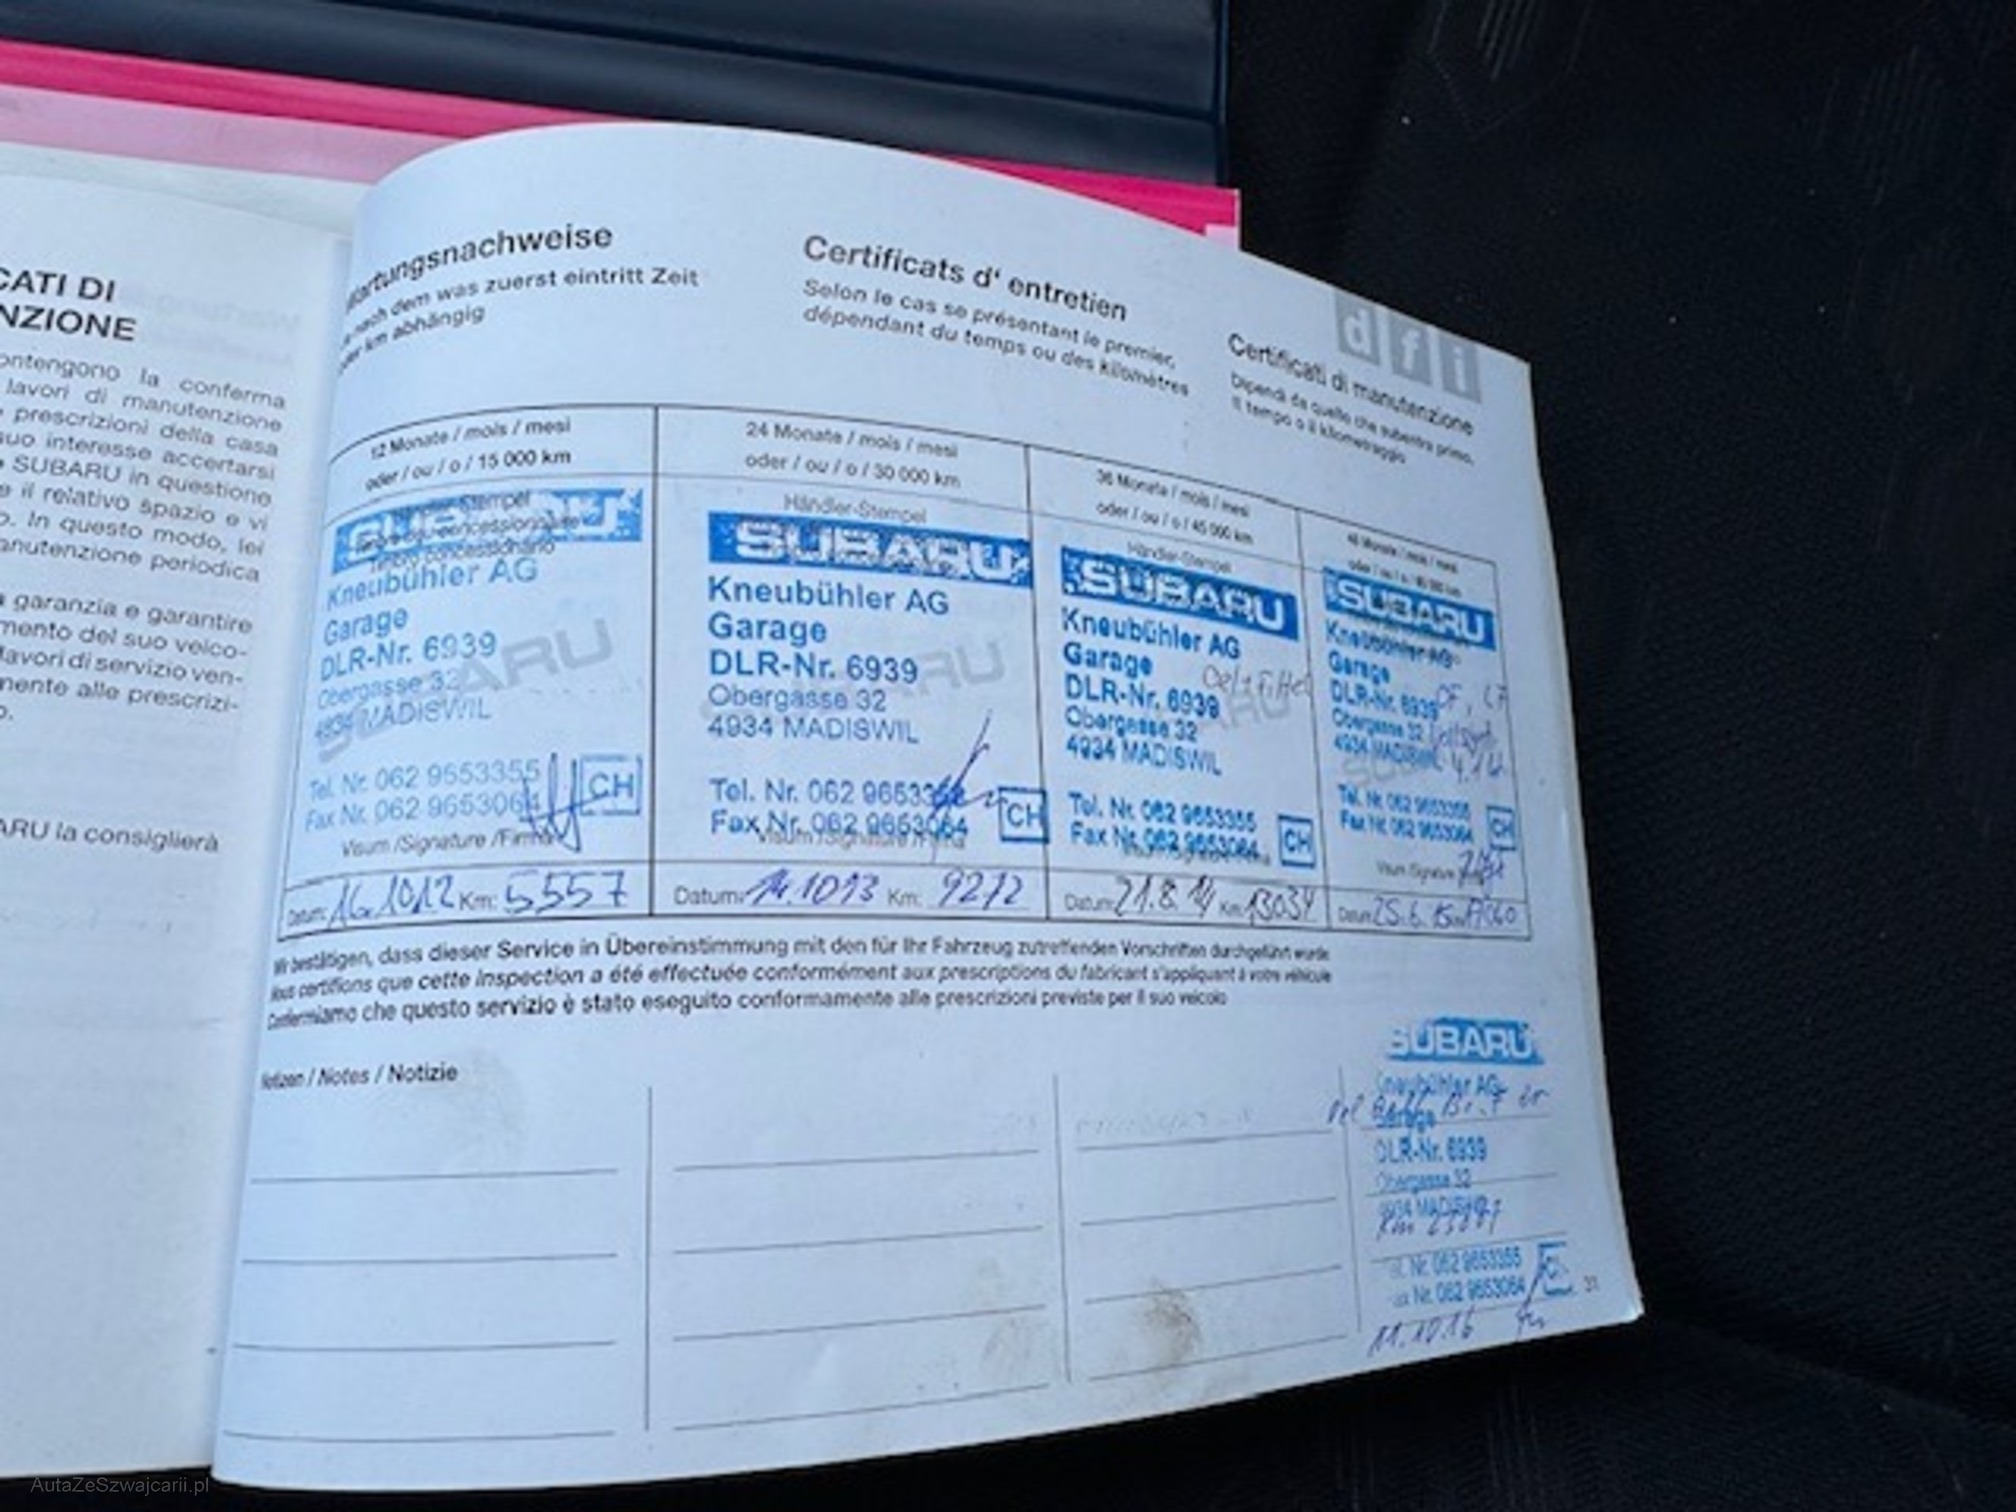 CATI DI
NZIONE
ontengono la conferma
lavori di manutenzione
prescrizioni della casa
suo interesse accertarsi
SUBARU in questione
e il relativo spazio e vi
o. In questo modo, lei
anutenzione periodica
a garanzia e garantire
mento del suo veico-
lavori di servizio ven-
mente alle prescrizi-
o.
ARU la consiglierà
Wartungsnachweise
nach dem was zuerst eintritt Zeit
oder km abhängig
Certificats d' entretien
Selon le cas se présentant le premier,
dépendant du temps ou des kilomètres
dfi
Certificati di manutenzione
Dipendi da quello che subentra primo,
il tempo o il kilometraggio
12 Monate / mois / mesi
oder / ou / o / 15 000 km
Händler-Stempel
SUBARU
Kneubühler AG
Garage
DLR-Nr. 6939
Obergasse 32
4934 MADISWIL
Tel. Nr. 062 9653355
Fax Nr. 062 9653064
CH
Visum /Signature /Firma
Datum: 16.10.12 Km: 5557
24 Monate / mois / mesi
oder / ou / o / 30 000 km
Händler-Stempel
SUBARU
Kneubühler AG
Garage
DLR-Nr. 6939
Obergasse 32
4934 MADISWIL
Tel. Nr. 062 9653355
Fax Nr. 062 9653064
CH
Visum /Signature /Firma
Datum: 14.10.13 Km: 9272
36 Monate / mois / mesi
oder / ou / o / 45 000 km
Händler-Stempel
SUBARU
Kneubühler AG
Garage
DLR-Nr. 6939
Obergasse 32
4934 MADISWIL
Tel. Nr. 062 9653355
Fax Nr. 062 9653064
CH
Datum: 21.8.14 Km: 13034
48 Monate / mois / mesi
SUBARU
Kneubühler AG
Garage
DLR-Nr. 6939
Obergasse 32
4934 MADISWIL
Tel. Nr. 062 9653355
Fax Nr. 062 9653064
CH
Visum /Signature
Datum: 25.6.15
Wir bestätigen, dass dieser Service in Übereinstimmung mit den für Ihr Fahrzeug zutreffenden Vorschriften durchgeführt wurde
Nous certifions que cette inspection a été effectuée conformément aux prescriptions du fabricant s'appliquant à votre véhicule
Confermiamo che questo servizio è stato eseguito conformamente alle prescrizioni previste per il suo veicolo
Notizen / Notes / Notizie
SUBARU
Kneubühler AG
Garage
DLR-Nr. 6939
Obergasse 32
4934 MADISWIL
Nr. 062 9653355
Nr. 062 9653064
31
11.10.16
AutaZeSzwajcarii.pl